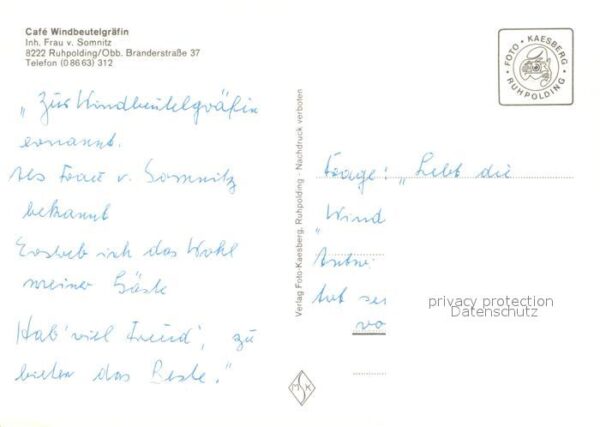 Café Windbeutelgräfin
Inh. Frau v. Somnitz
8222 Ruhpolding/Obb. Branderstraße 37
Telefon (0 86 63) 312
„Zur Windbeutelgräfin
ernannt.
Als Frau v. Somnitz
bekannt
Erstreb ich das Wohl
meiner Gäste
Hab' viel Freud', zu
bieten das Beste."
Verlag Foto-Kaesberg, Ruhpolding - Nachdruck verboten
MSK
FOTO · KAESBERG · RUHPOLDING ·
Frage: „Lebt die
Wind
Antw:
hat sei
vo
privacy protection
Datenschutz